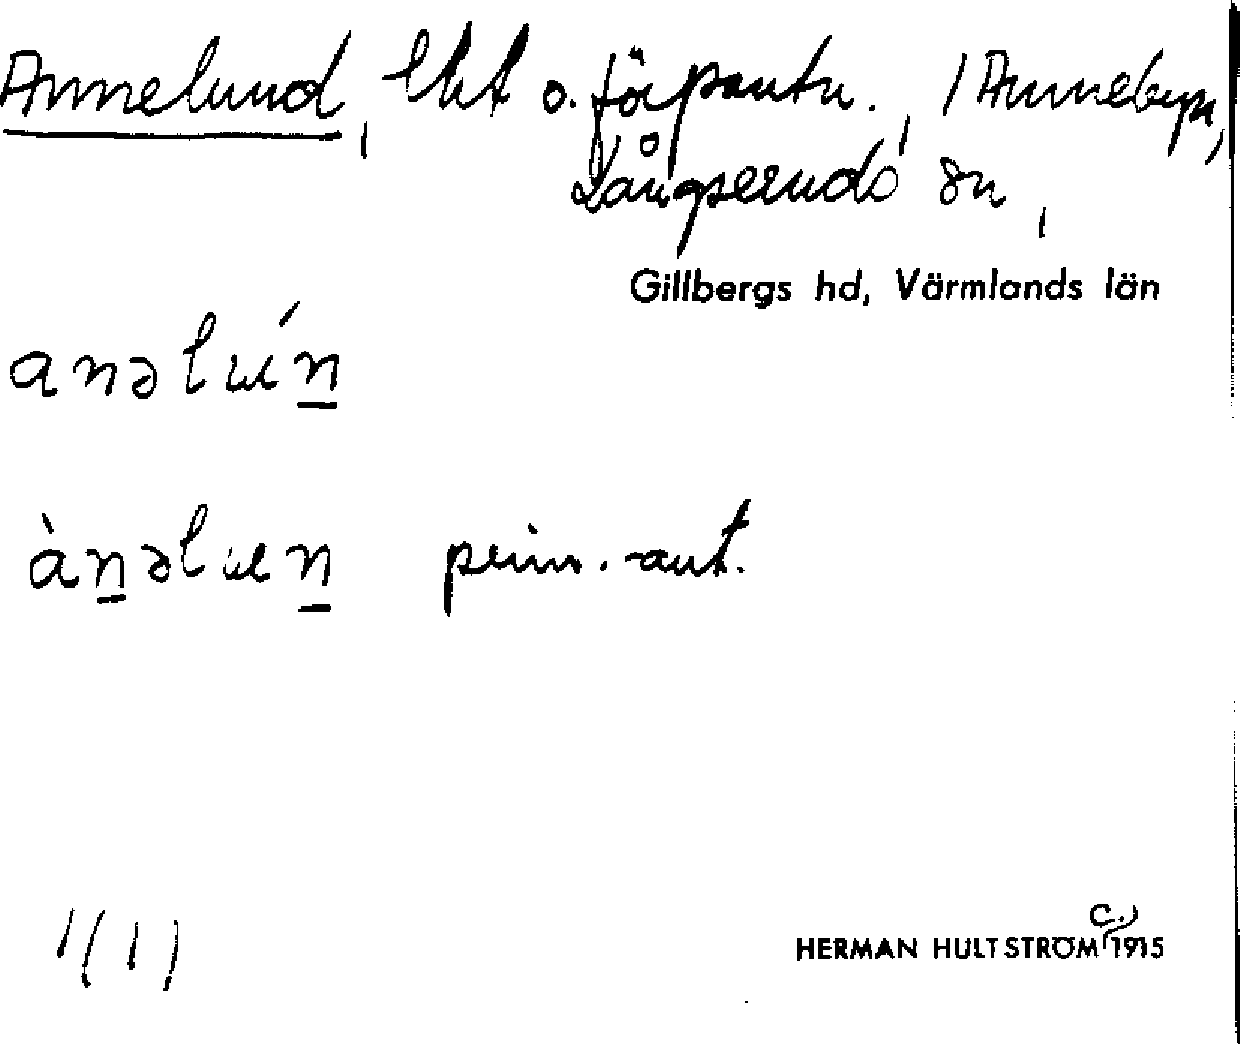 Annelund, lht o. förpantn., / Annebyn,
Långseruds sn,
Gillbergs hd, Värmlands län
anəlún
ànəlun prim. -aut.
1(1)
c.)
HERMAN HULTSTRÖM 1915